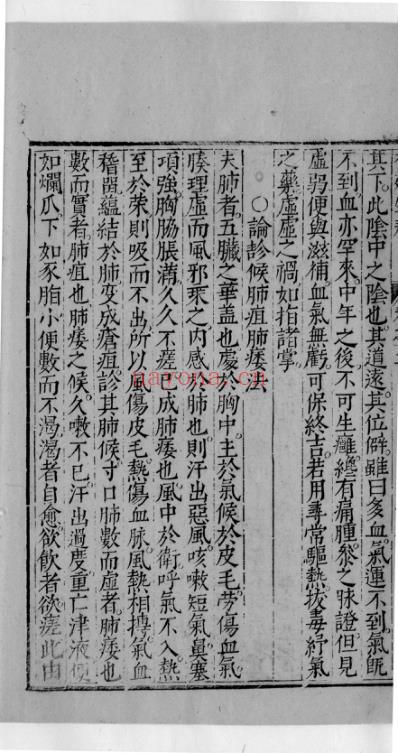 其下此陰中之陰也其道遠其位僻雖曰多血氣運不到氣既
不到血亦罕來中年之後不可生癰纔有痛腫參之脉證但見
虛弱便與滋補血氣無虧可保終吉若用尋常驅熱拔毒紓氣
之藥虛虛之禍如指諸掌
○論診候肺疽肺痿法
夫肺者五臟之華盖也處於胸中主於氣候於皮毛勞傷血氣
腠理虛而風邪乘之内感於肺也則汗出惡風咳嗽短氣鼻塞
項強胸脇脹滿久久不瘥已成肺痿也風中於衛呼氣不入熱
至於榮則吸而不出所以風傷皮毛熱傷血脉風熱相搏氣血
稽留蘊結於肺變成瘡疽診其肺候寸口肺數而虛者肺痿也
數而實者肺疽也肺痿之候久嗽不已汗出過度重亡津液便
如爛瓜下如豕脂小便數而不渴渴者自愈欲飲者欲瘥此由
nayona.cn